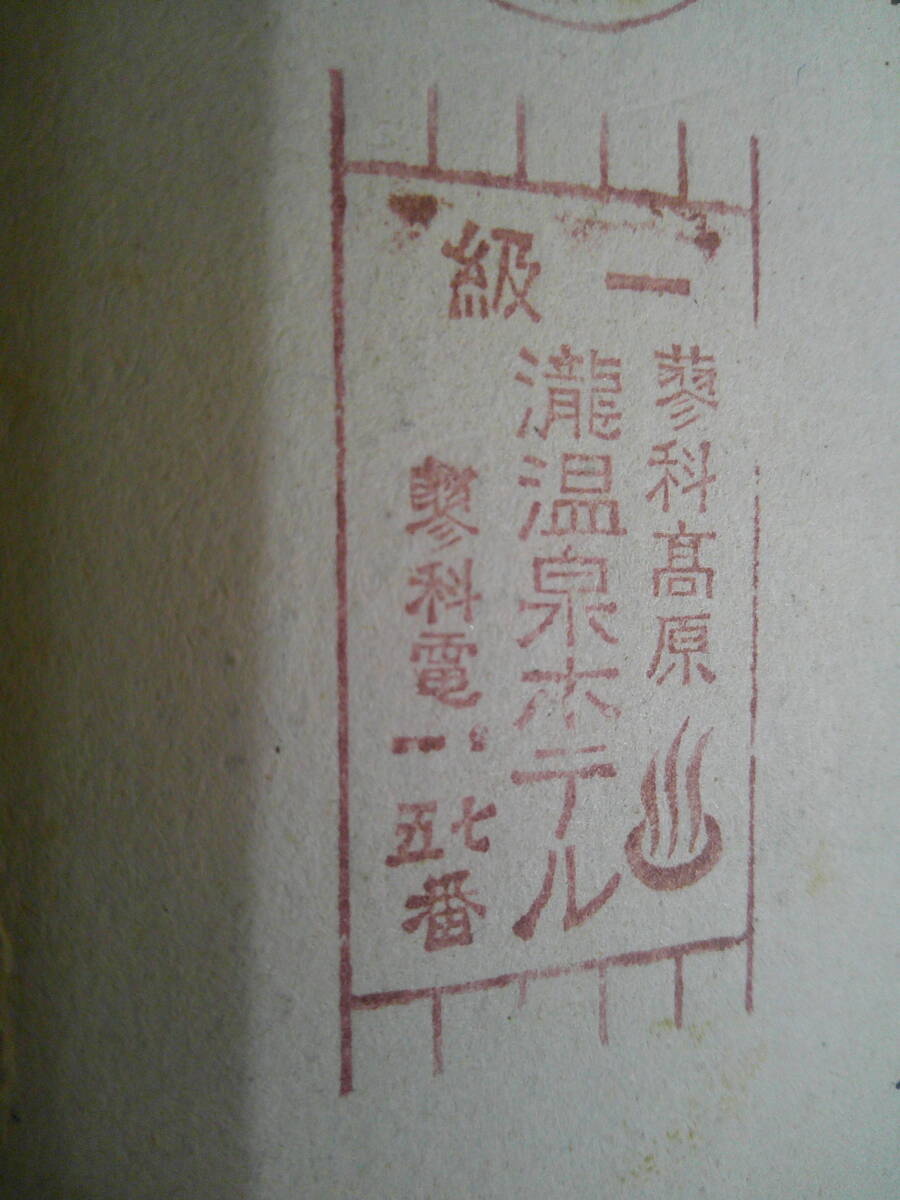 一級
蓼科髙原
♨
瀧温泉ホテル
蓼科電
七
一五
番